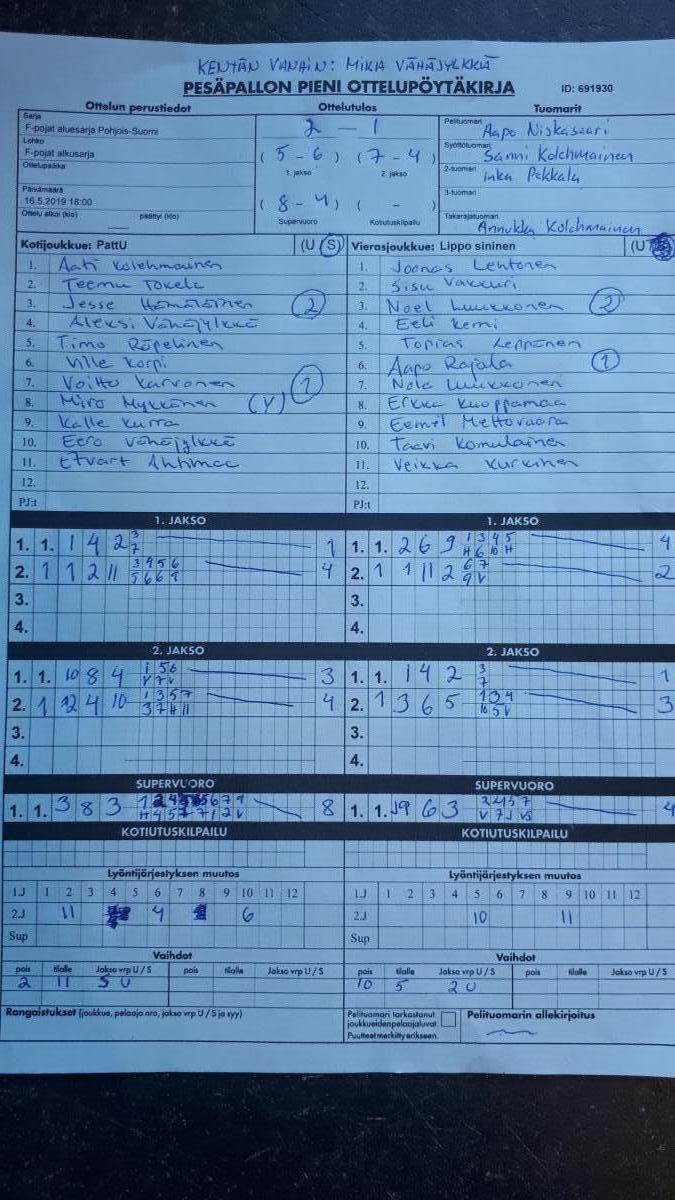 KENTÄN VANHIN: MIKA VÄHÄJYLKKÄ
PESÄPALLON PIENI OTTELUPÖYTÄKIRJA ID: 691930
Ottelun perustiedot Ottelutulos Tuomarit
Sarja
F-pojat aluesarja Pohjois-Suomi
Lohko
F-pojat alkusarja
Ottelupaikka
Päivämäärä
16.5.2019 18:00
Ottelu alkoi (klo) ___ päättyi (klo)
2 - 1
(5 - 6) (7 - 4)
1. jakso 2. jakso
(8 - 4) ( - )
Supervuoro Kotiutuskilpailu
Pelituomari Aapo Niskasaari
Syöttötuomari Sanni Kolehmainen
2-tuomari Inka Pekkala
3-tuomari
Takarajatuomari Annukka Kolehmainen
Kotijoukkue: PattU (U S)
1. Aati Kolehmainen
2. Teemu Tokola
3. Jesse Hämäläinen 2
4. Aleksi Vähäjylkkä
5. Timo Räpelinen
6. Ville Korpi
7. Voitto Karvonen 1
8. Miro Mykkänen (V)
9. Kalle Kurra
10. Eero Vähäjylkkä
11. Etvart
12.
PJ:t
Vierasjoukkue: Lippo sininen
1. Joonas Lehtonen
2. Sisu Vakkuri
3. Noel Luukkonen 2
4. Eeli Kemi
5. Topias Leppänen
6. Aapo Rajala 1
7. Nola Luukkonen
8. Erkka Kuoppamaa
9. Eemil Mettovaara
10. Taavi Komulainen
11. Veikka Kurkinen
12.
PJ:t
1. JAKSO 1. JAKSO
1. 1. 1 4 2 3 1 1. 1. 2 6 9 1 3 4 5 4
7 H 6 10 H
2. 1 1 2 11 3 4 5 6 4 2. 1 1 11 2 6 7 2
5 6 6 9 9 V
3. 3.
4. 4.
2. JAKSO 2. JAKSO
1. 1. 10 8 4 1 5 6 3 1. 1. 1 4 2 3 1
V 7 V 7
2. 1 12 4 10 1 3 5 7 4 2. 1 3 6 5 1 3 4 3
3 7 H 11 10 5 V
3. 3.
4. 4.
SUPERVUORO SUPERVUORO
1. 1. 3 8 3 8 1. 1. 9 6 3 4
KOTIUTUSKILPAILU KOTIUTUSKILPAILU
Lyöntijärjestyksen muutos Lyöntijärjestyksen muutos
1.J 1 2 3 4 5 6 7 8 9 10 11 12 1.J 1 2 3 4 5 6 7 8 9 10 11 12
2.J 11 4 6 2.J 10 11
Sup Sup
Vaihdot Vaihdot
pois tilalle Jakso vrp U / S pois tilalle Jakso vrp U / S pois tilalle Jakso vrp U / S pois tilalle Jakso vrp U / S
2 11 S U 10 5 2 U
Rangaistukset (joukkue, pelaaja nro, jakso vrp U / S ja syy)
Pelituomari tarkastanut
joukkueiden pelaajaluvat.
Puutteet merkitty erikseen.
Pelituomarin allekirjoitus